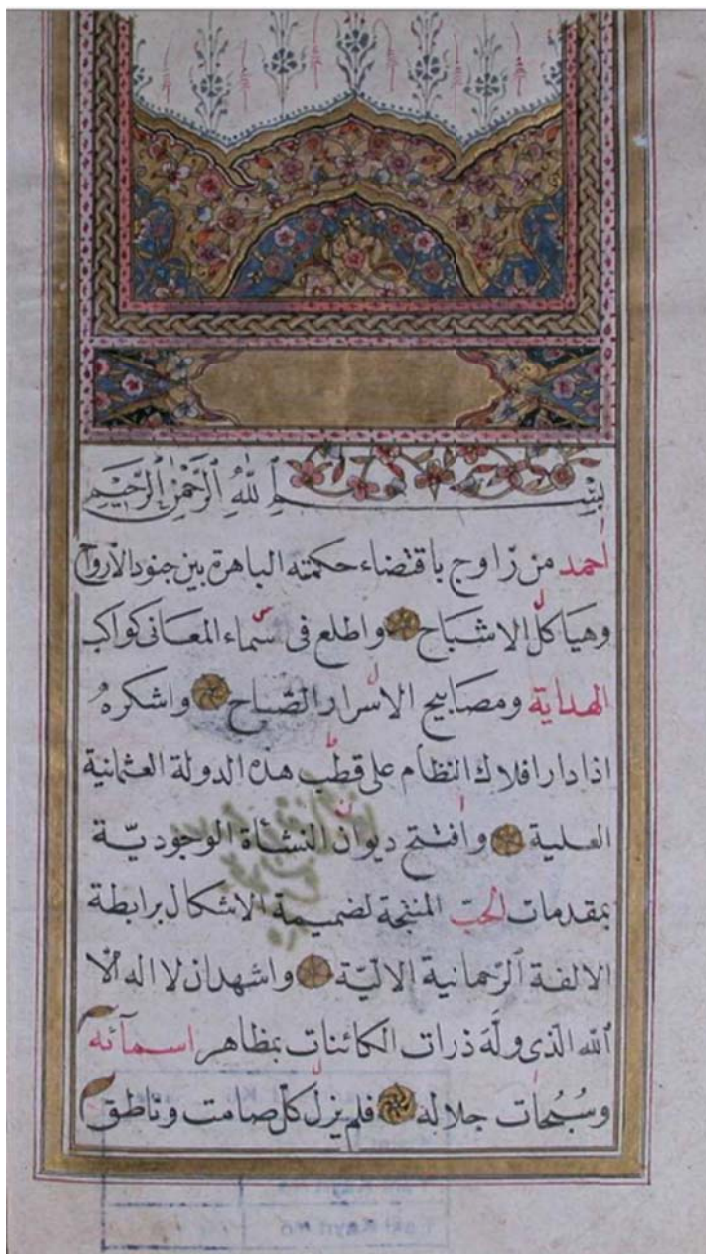 بِسْمِ اللّٰهِ ٱلرَّحْمٰنِ ٱلرَّحِيْمِ
احمد من زاوج باقتضاء حكمته الباهرة بين جنود الارواح
وهياكل الاشباح واطلع فى سماء المعانى كواكب
الهداية ومصابيح الاسرار الصباح واشكرهُ
اذا دار افلاك النظام على قطب هذه الدولة العثمانية
العلية وافتتح ديوان النشأة الوجوديّة
بمقدمات الحبّ المنتجة لضميمة الاشكال برابطة
الالفة ٱلرّحمانية الاليّة واشهد ان لا اله الا
ٱلله الّذى ولّه ذرات الكائنات بمظاهر اسمآئه
وسُبُحات جلاله فلم يزل كلّ صامت وناطق